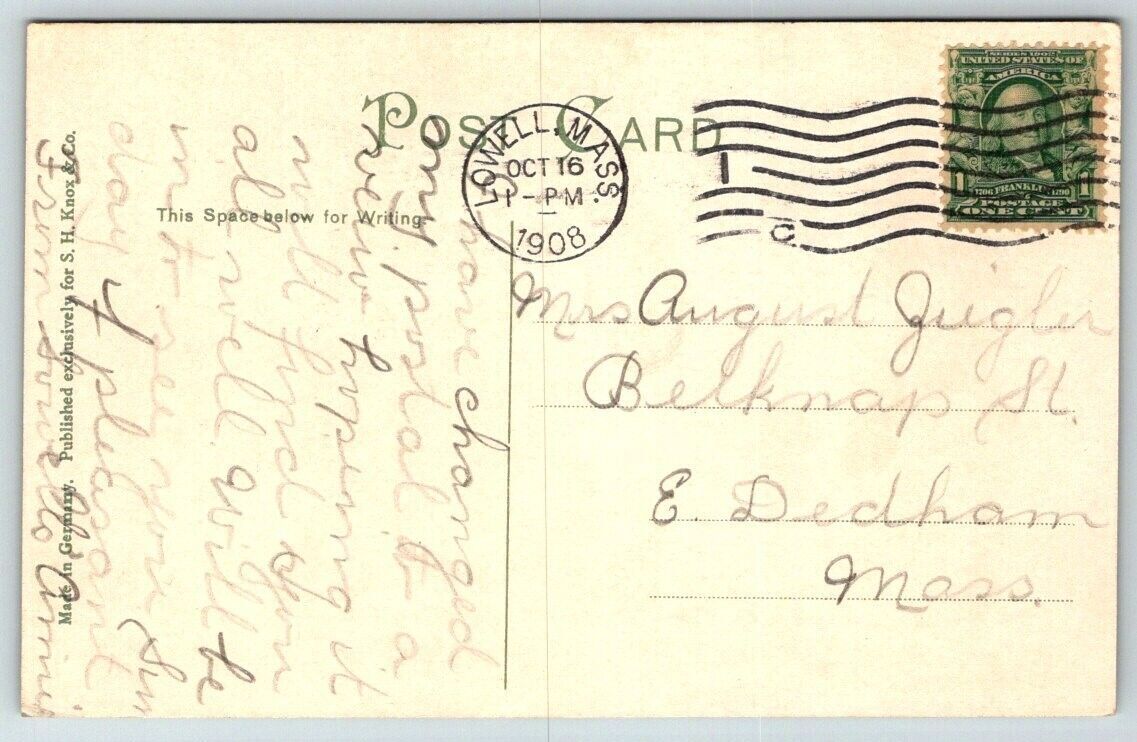 POST CARD
This Space below for Writing
LOWELL, MASS.
OCT 16
1-PM
1908
SERIES 1902
UNITED STATES OF
AMERICA
1706 FRANKLIN 1790
POSTAGE
1 ONE CENT 1
Mrs August Ziegler
Belknap St.
E. Dedham
Mass.
have changed
my postal to a
hopeing it
will find you
all well will be
in to see you Sun
day if pleasant
From
Made in Germany. Published exclusively for S. H. Knox & Co.